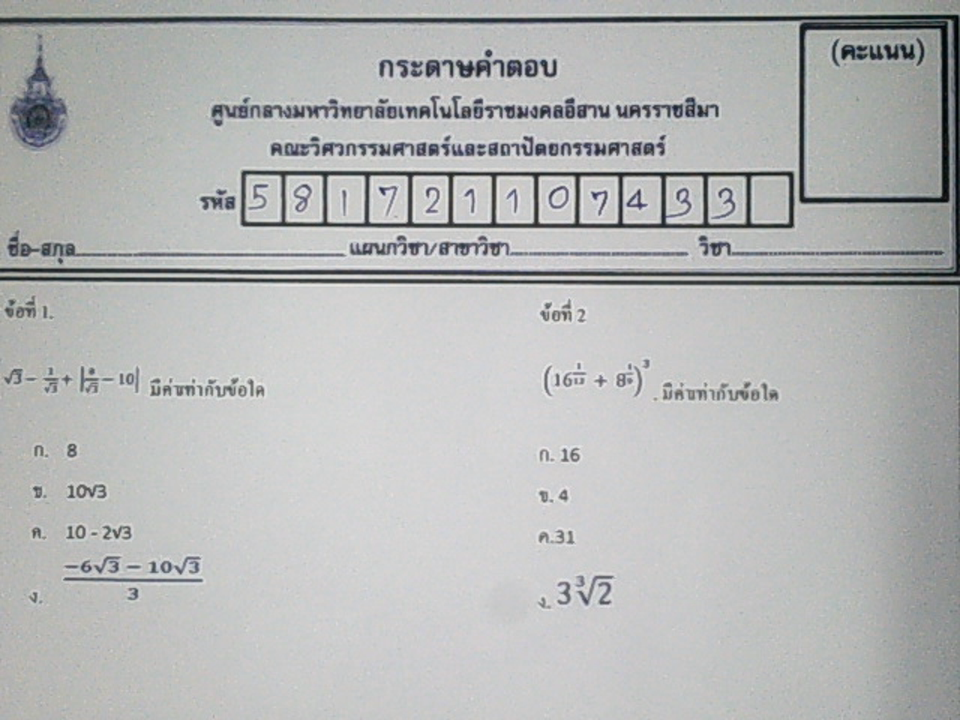 (คะแนน)
กระดาษคำตอบ
ศูนย์กลางมหาวิทยาลัยเทคโนโลยีราชมงคลอีสาน นครราชสีมา
คณะวิศวกรรมศาสตร์และสถาปัตยกรรมศาสตร์
รหัส 5 8 1 7 2 1 1 0 7 4 3 3
ชื่อ-สกุล แผนกวิชา/สาขาวิชา วิชา
ข้อที่ 1.
√3 − 1/√3 + | /√3 − 10| มีค่าเท่ากับข้อใด
ก. 8
ข. 10√3
ค. 10 - 2√3
ง. (−6√3 − 10√3)/3
ข้อที่ 2
(16^(1/12) + 8^(1/9))^3 . มีค่าเท่ากับข้อใด
ก. 16
ข. 4
ค.31
ง. 3∛2